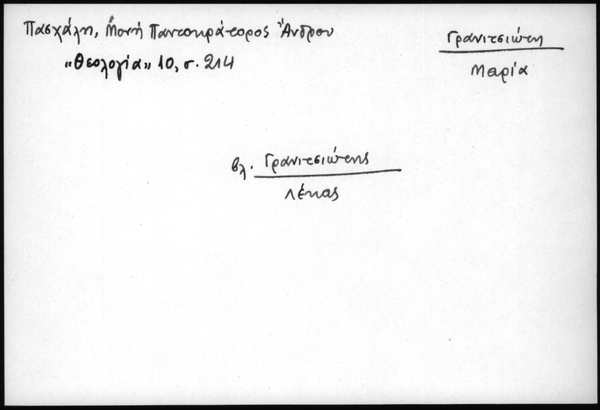 Πασχάλη, Μονή Παντοκράτορος Ἄνδρου
«Θεολογία» 10, σ. 214
Γρανιτσιώτη
Μαρία
βλ. Γρανιτσιώτης
Λέκας